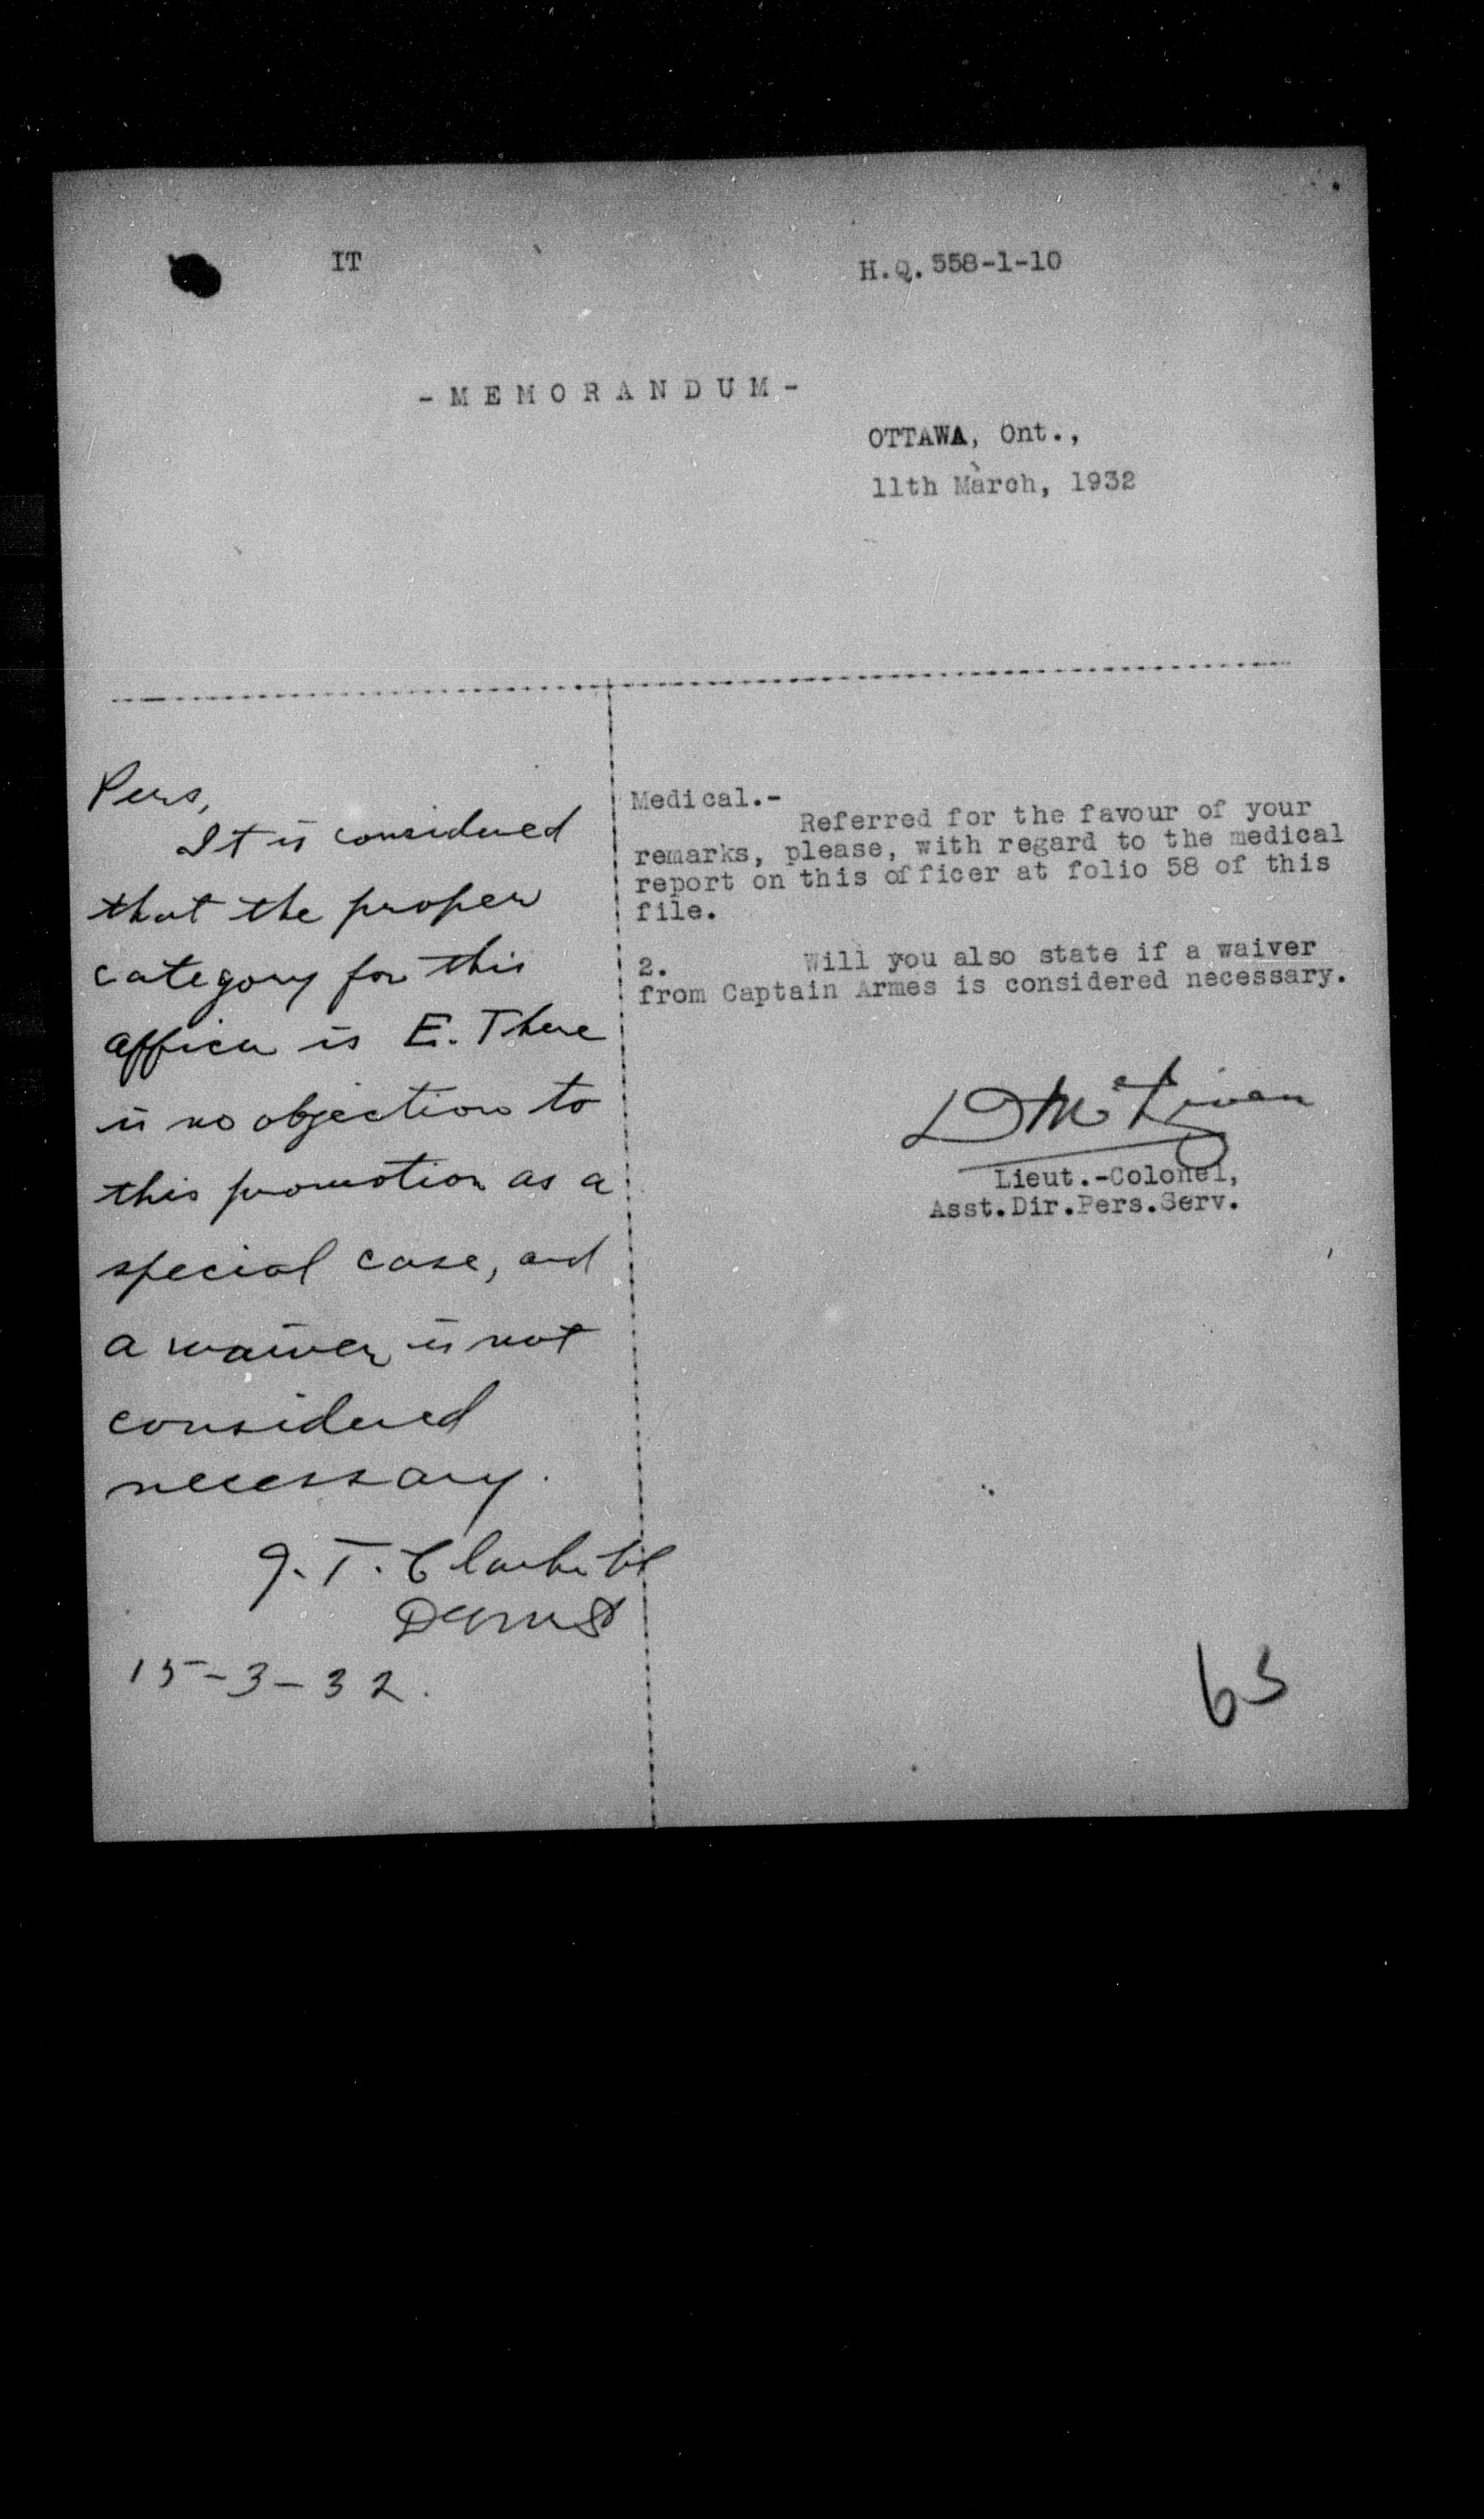 IT
H.Q. 558-1-10
- M E M O R A N D U M -
OTTAWA, Ont.,
11th March, 1932
Pers,
It is considered
that the proper
category for this
officer is E. There
is no objection to
this promotion as a
special case, and
a waiver is not
considered
necessary.
J. T. Clarke Col
DGMS
15-3-32.
Medical.-
Referred for the favour of your
remarks, please, with regard to the medical
report on this officer at folio 58 of this
file.
2. Will you also state if a waiver
from Captain Armes is considered necessary.
Lieut.-Colonel,
Asst.Dir.Pers.Serv.
63